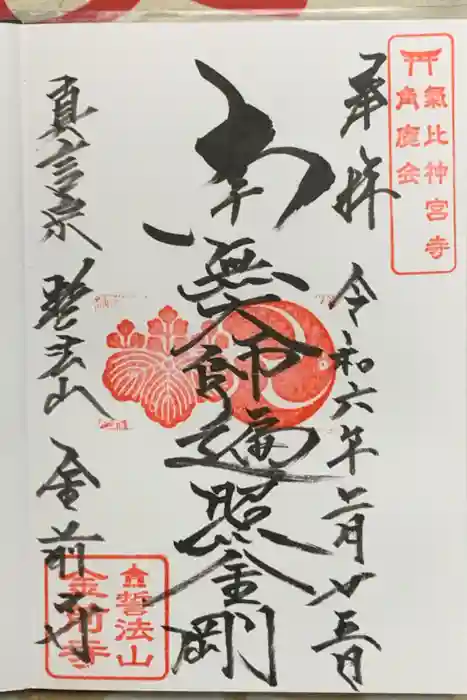 氣比神宮寺
角鹿会
奉拝
令和六年二月廿三日
南無大師遍照金剛
真言宗 誓法山 金前寺
誓法山
金前寺